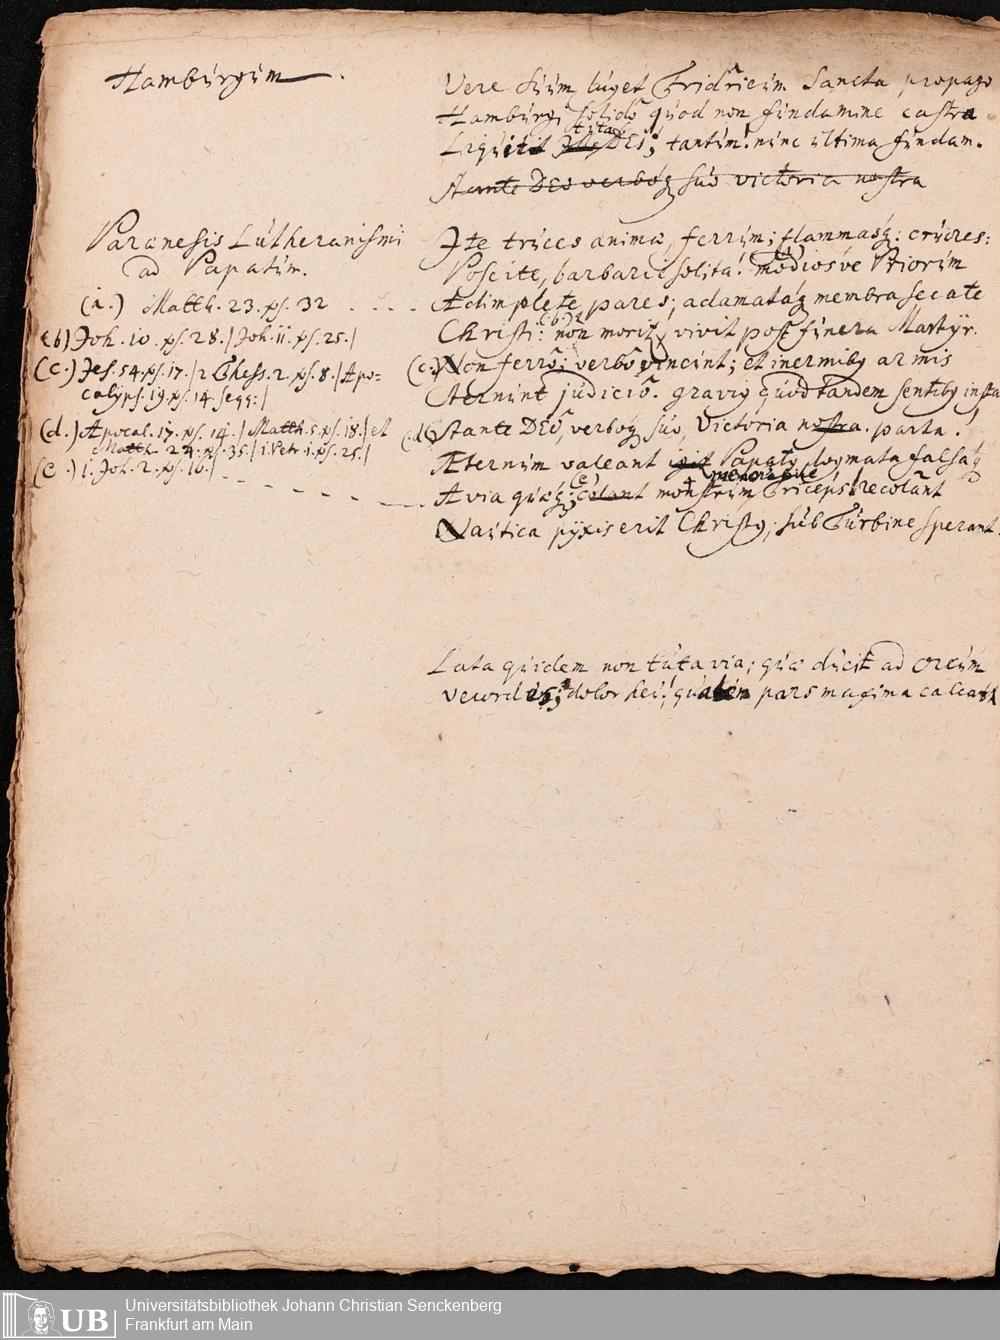 Hamburgum.
Vere suum luget Fridricum Sancta propago
Hamburgi solidô quod non fundamine castra
Liquit tutae DES; tantum! nunc ultima fundam.
Stante DEO verboq suo victoria nostra
Paraenesis Lutheranismi
ad Papatum.
(a.) Matth. 23. ps. 32 . . . .
(b) Joh. 10. ps. 28. / Joh. 11. ps. 25. /
(c.) Jes. 54. ps. 17. / 2 Thess. 2. ps. 8. / Apo-
calyps. 19. ps. 14. seqq: /
(d.) Apocal. 17. ps. 14. / Matth. 5. ps. 18. / et
Matth 24. ps. 35. / 1. Petr. 1. ps. 25. /
(e.) 1. Joh. 2. ps. 18. /
Ite truces animae, ferrum; flammasq: cruces:
Poscite, barbarie solita! modiosve Priorum
Adimplete pares; adamataq membra secate
Christi: (b) non morit, vivit post funera Martyr.
(c.) Non ferrô; verbô vincunt; et inermibq armis
Aternunt judiciô. gravig quod tandem sentibq
(d) Stante DEO, verboq suo, Victoria nostra. parta!
Æternum valeant Papaty dogmata falsaq
Avia quaeq; (e) colant monstrum Triceps! recolant
Nautica pyxis erit Christq, sub Turbine sperant.
Lata quidem non tuta via; quae ducit ad orcum
dolor hei! pars maxima calcat
Universitätsbibliothek Johann Christian Senckenberg
Frankfurt am Main
UB